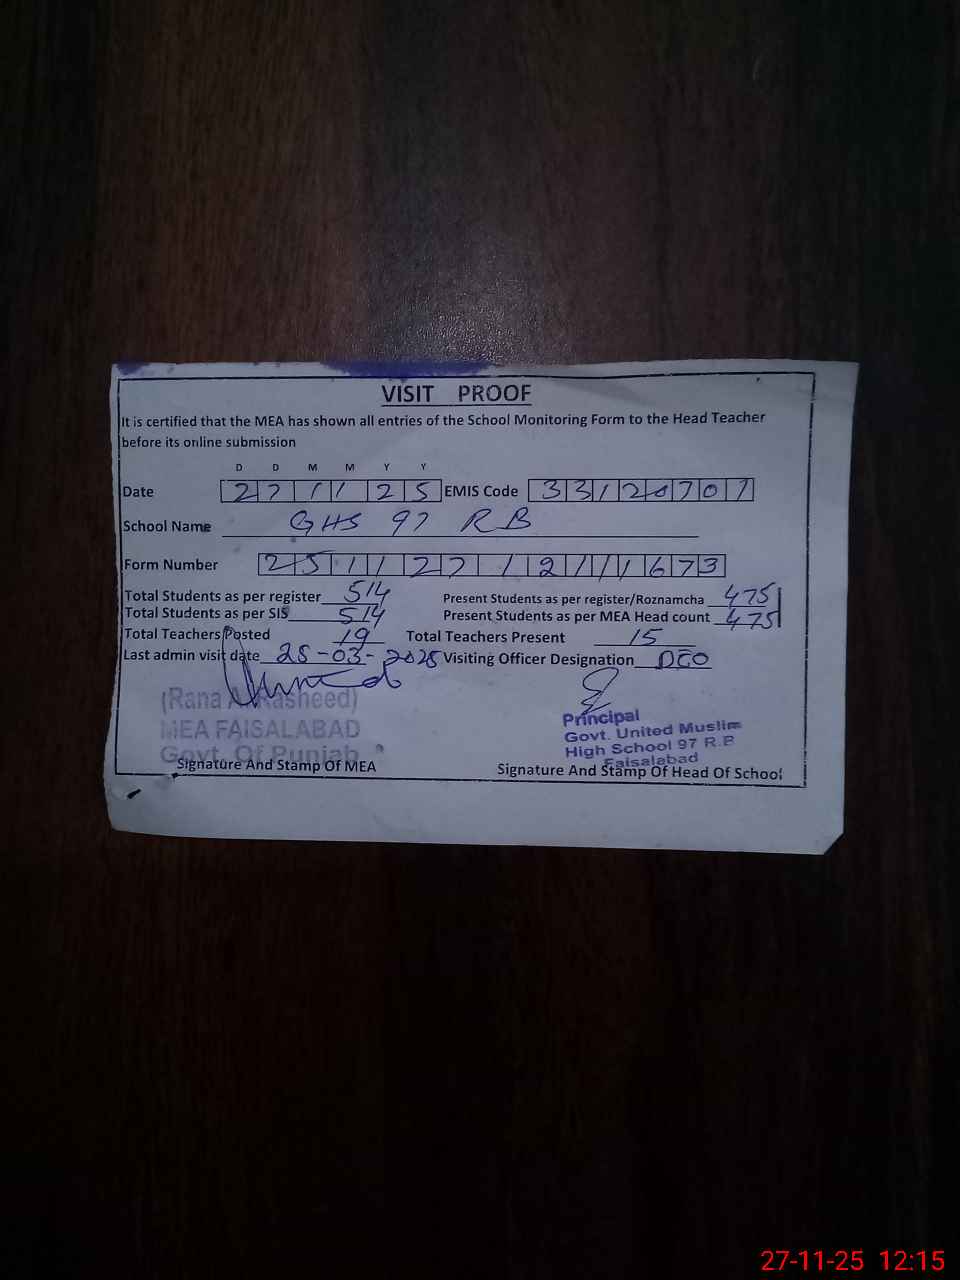 VISIT PROOF
It is certified that the MEA has shown all entries of the School Monitoring Form to the Head Teacher
before its online submission
D D M M Y Y
Date 27 11 25 EMIS Code 33120707
School Name GHS 97 RB
Form Number 2511271211673
Total Students as per register 514 Present Students as per register/Roznamcha 475
Total Students as per SIS 514 Present Students as per MEA Head count 475
Total Teachers Posted 19 Total Teachers Present 15
Last admin visit date 25-03-2025 Visiting Officer Designation DEO
(Rana A. Rasheed)
MEA FAISALABAD
Govt. Of Punjab
Signature And Stamp Of MEA
Principal
Govt. United Muslim
High School 97 R.B
Faisalabad
Signature And Stamp Of Head Of School
27-11-25 12:15